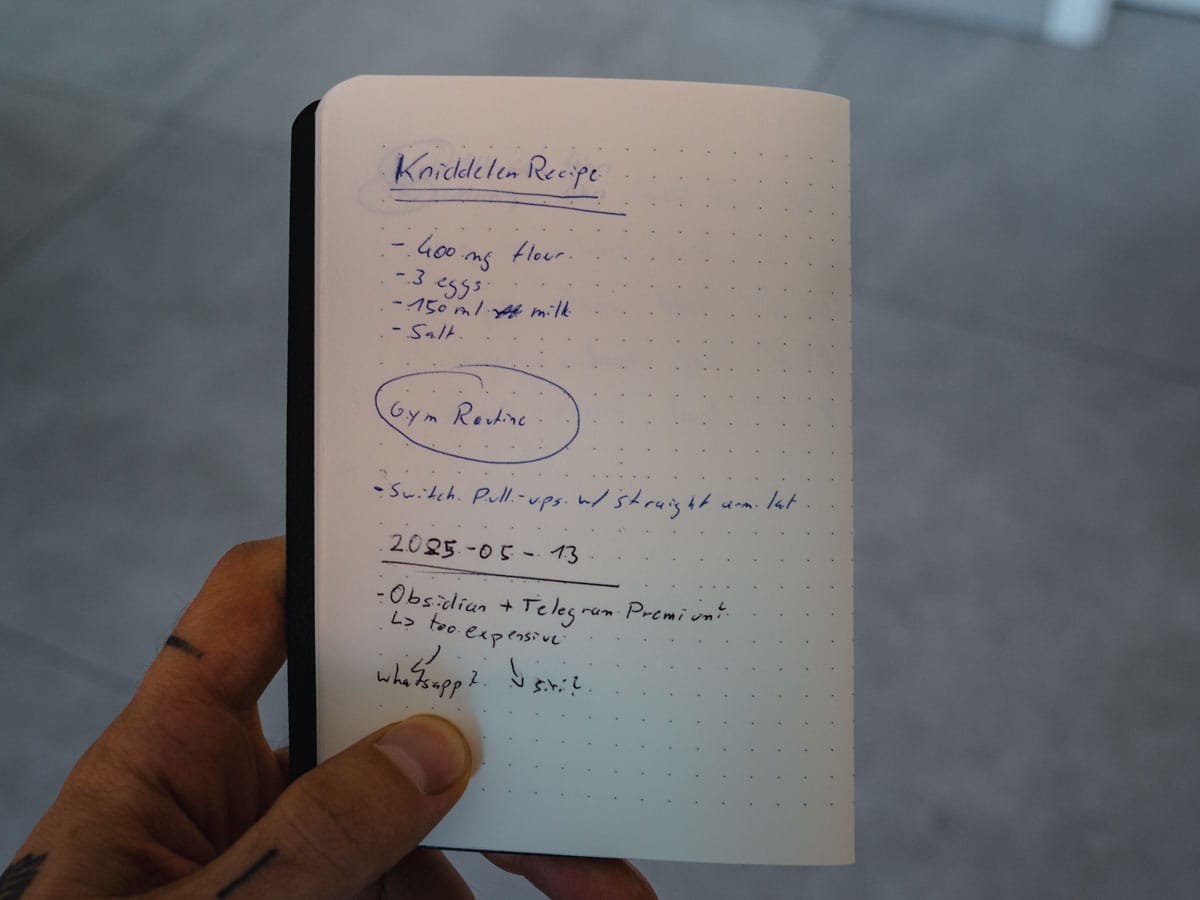 Kniddelen Recipe
- 400 mg flour
- 3 eggs
- 150 ml milk
- Salt
Gym Routine
- Switch Pull-ups w/ straight arm lat
2025-05-13
- Obsidian + Telegram Premium?
↳ too expensive
whatsapp? ↘ siri?